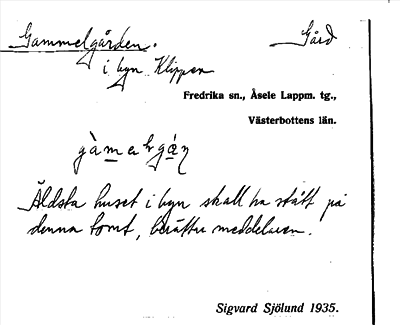 Gammelgården.
Gård
i byn Klippen
Fredrika sn., Åsele Lappm. tg.,
Västerbottens län.
Äldsta huset i byn skall ha stått på
denna tomt, berättar meddelaren.
Sigvard Sjölund 1935.